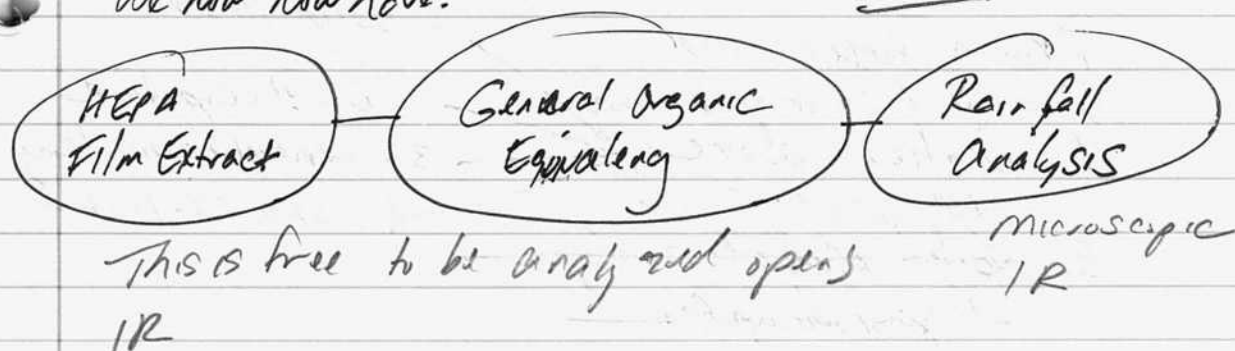 We now now have:
HEPA
Film Extract
General Organic
Equivaleng
Rainfall
Analysis
Microscopic
IR
This is free to be analyzed openly
IR